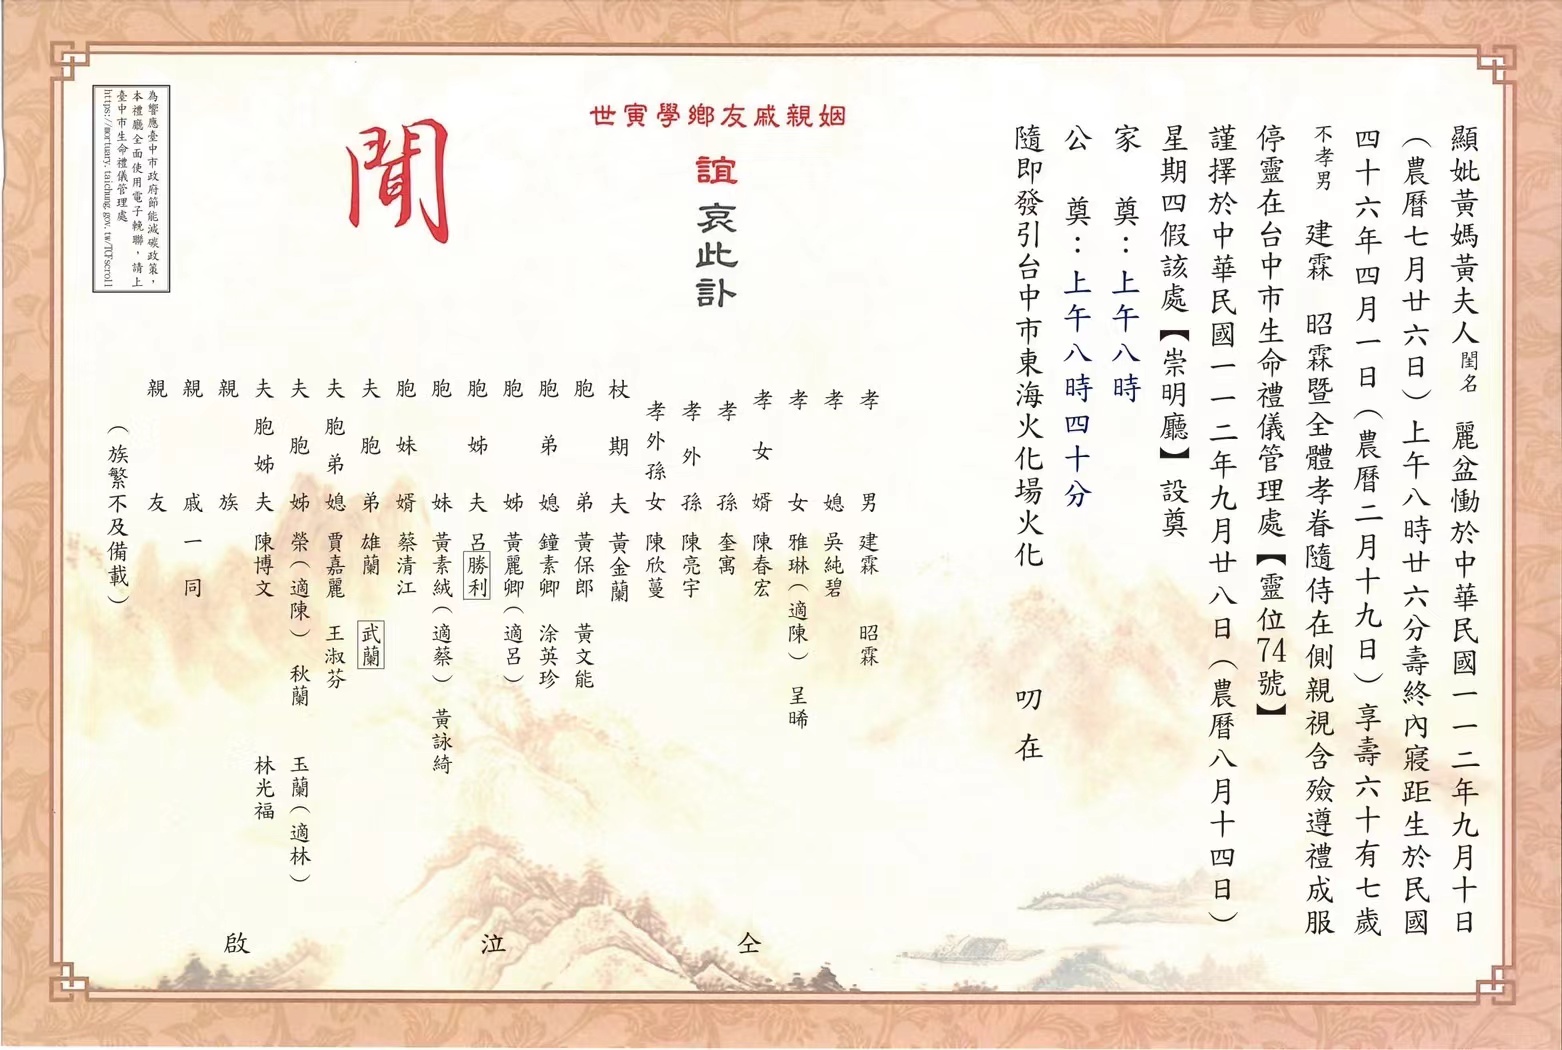 顯妣黃媽黃夫人閨名 麗盆慟於中華民國一一二年九月十日
（農曆七月廿六日）上午八時廿六分壽終內寢距生於民國
四十六年四月一日（農曆二月十九日）享壽六十有七歲
不孝男 建霖 昭霖暨全體孝眷隨侍在側親視含殮遵禮成服
停靈在台中市生命禮儀管理處【靈位74號】
謹擇於中華民國一一二年九月廿八日（農曆八月十四日）
星期四假該處【崇明廳】設奠
家 奠：上午八時
公 奠：上午八時四十分
隨即發引台中市東海火化場火化 叨在
姻親戚友鄉學寅世
誼哀此訃
聞
孝男 建霖 昭霖
孝媳 吳純碧
孝女 雅琳（適陳） 呈晞
孝女婿 陳春宏
孝孫 奎寓
孝外孫 陳亮宇
孝外孫女 陳欣蔓
杖期夫 黃金蘭
胞弟 黃保郎 黃文能
胞弟媳 鐘素卿 涂英珍
胞姊 黃麗卿（適呂）
胞姊夫 呂勝利
胞妹 黃素絨（適蔡） 黃詠綺
胞妹婿 蔡清江
夫胞弟 雄蘭 武蘭
夫胞弟媳 賈嘉麗 王淑芬
夫胞姊 榮（適陳） 秋蘭 玉蘭（適林）
夫胞姊夫 陳博文 林光福
親族
親戚一同
親友
（族繁不及備載）
仝 泣 啟
為響應臺中市政府節能減碳政策，
本禮廳全面使用電子輓聯，請上
臺中市生命禮儀管理處
https://mortuary.taichung.gov.tw/TCFscroll